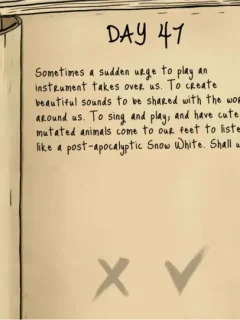 DAY 41
Sometimes a sudden urge to play an
instrument takes over us. To create
beautiful sounds to be shared with the
around us. To sing and play, and have cute
mutated animals come to our feet to
like a post-apocalyptic Snow White. Shall